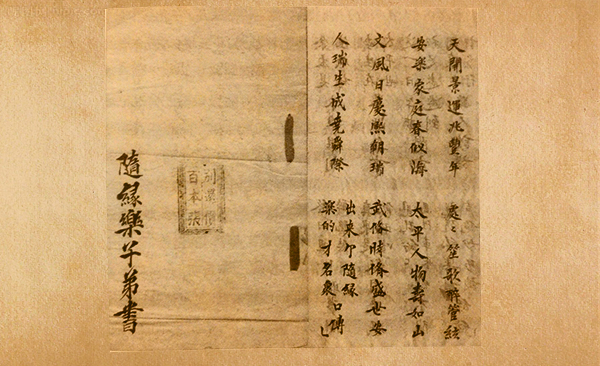 天開景運兆豐年 處々笙歌醉管絃
安樂家庭春似海 太平人物壽如山
文風日慶熙朝瑞 武備時脩盛世安
人瑞生成堯舜際 出來 隨緣
樂的才名衆口傳
別還價
百本張
隨緣樂子弟書